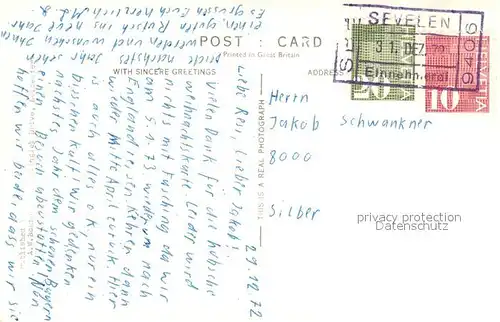 POST CARD
Printed in Great Britain
WITH SINCERE GREETINGS
ADDRESS
THIS IS A REAL PHOTOGRAPH
SEVELEN
31. DEZ. 72
Einnehmerei
9406
HELVETIA
10
29.12.72
Liebe Rosi, Lieber Jakob!
Vielen Dank für die hübsche
Weihnachtskarte. Leider wird
nichts mit Fasching da wir
am 5.1.73 wiederum nach
England reisen. Kehren dann
wieder Mitte April zurück. Hier
is auch alles o.k. nur ein
bisschen kalt! Wir gedenken
nächstes Jahr dem schönen Bayern
einen
hoffen wir beide, dass wir Sie
nächstes Jahr sehen
werden und wünschen Ihnen
einen guten Rutsch ins neue Jahr
Es grüssen Euch herzlich
Herrn
Jakob Schwankner
8000
Silber
privacy protection
Datenschutz